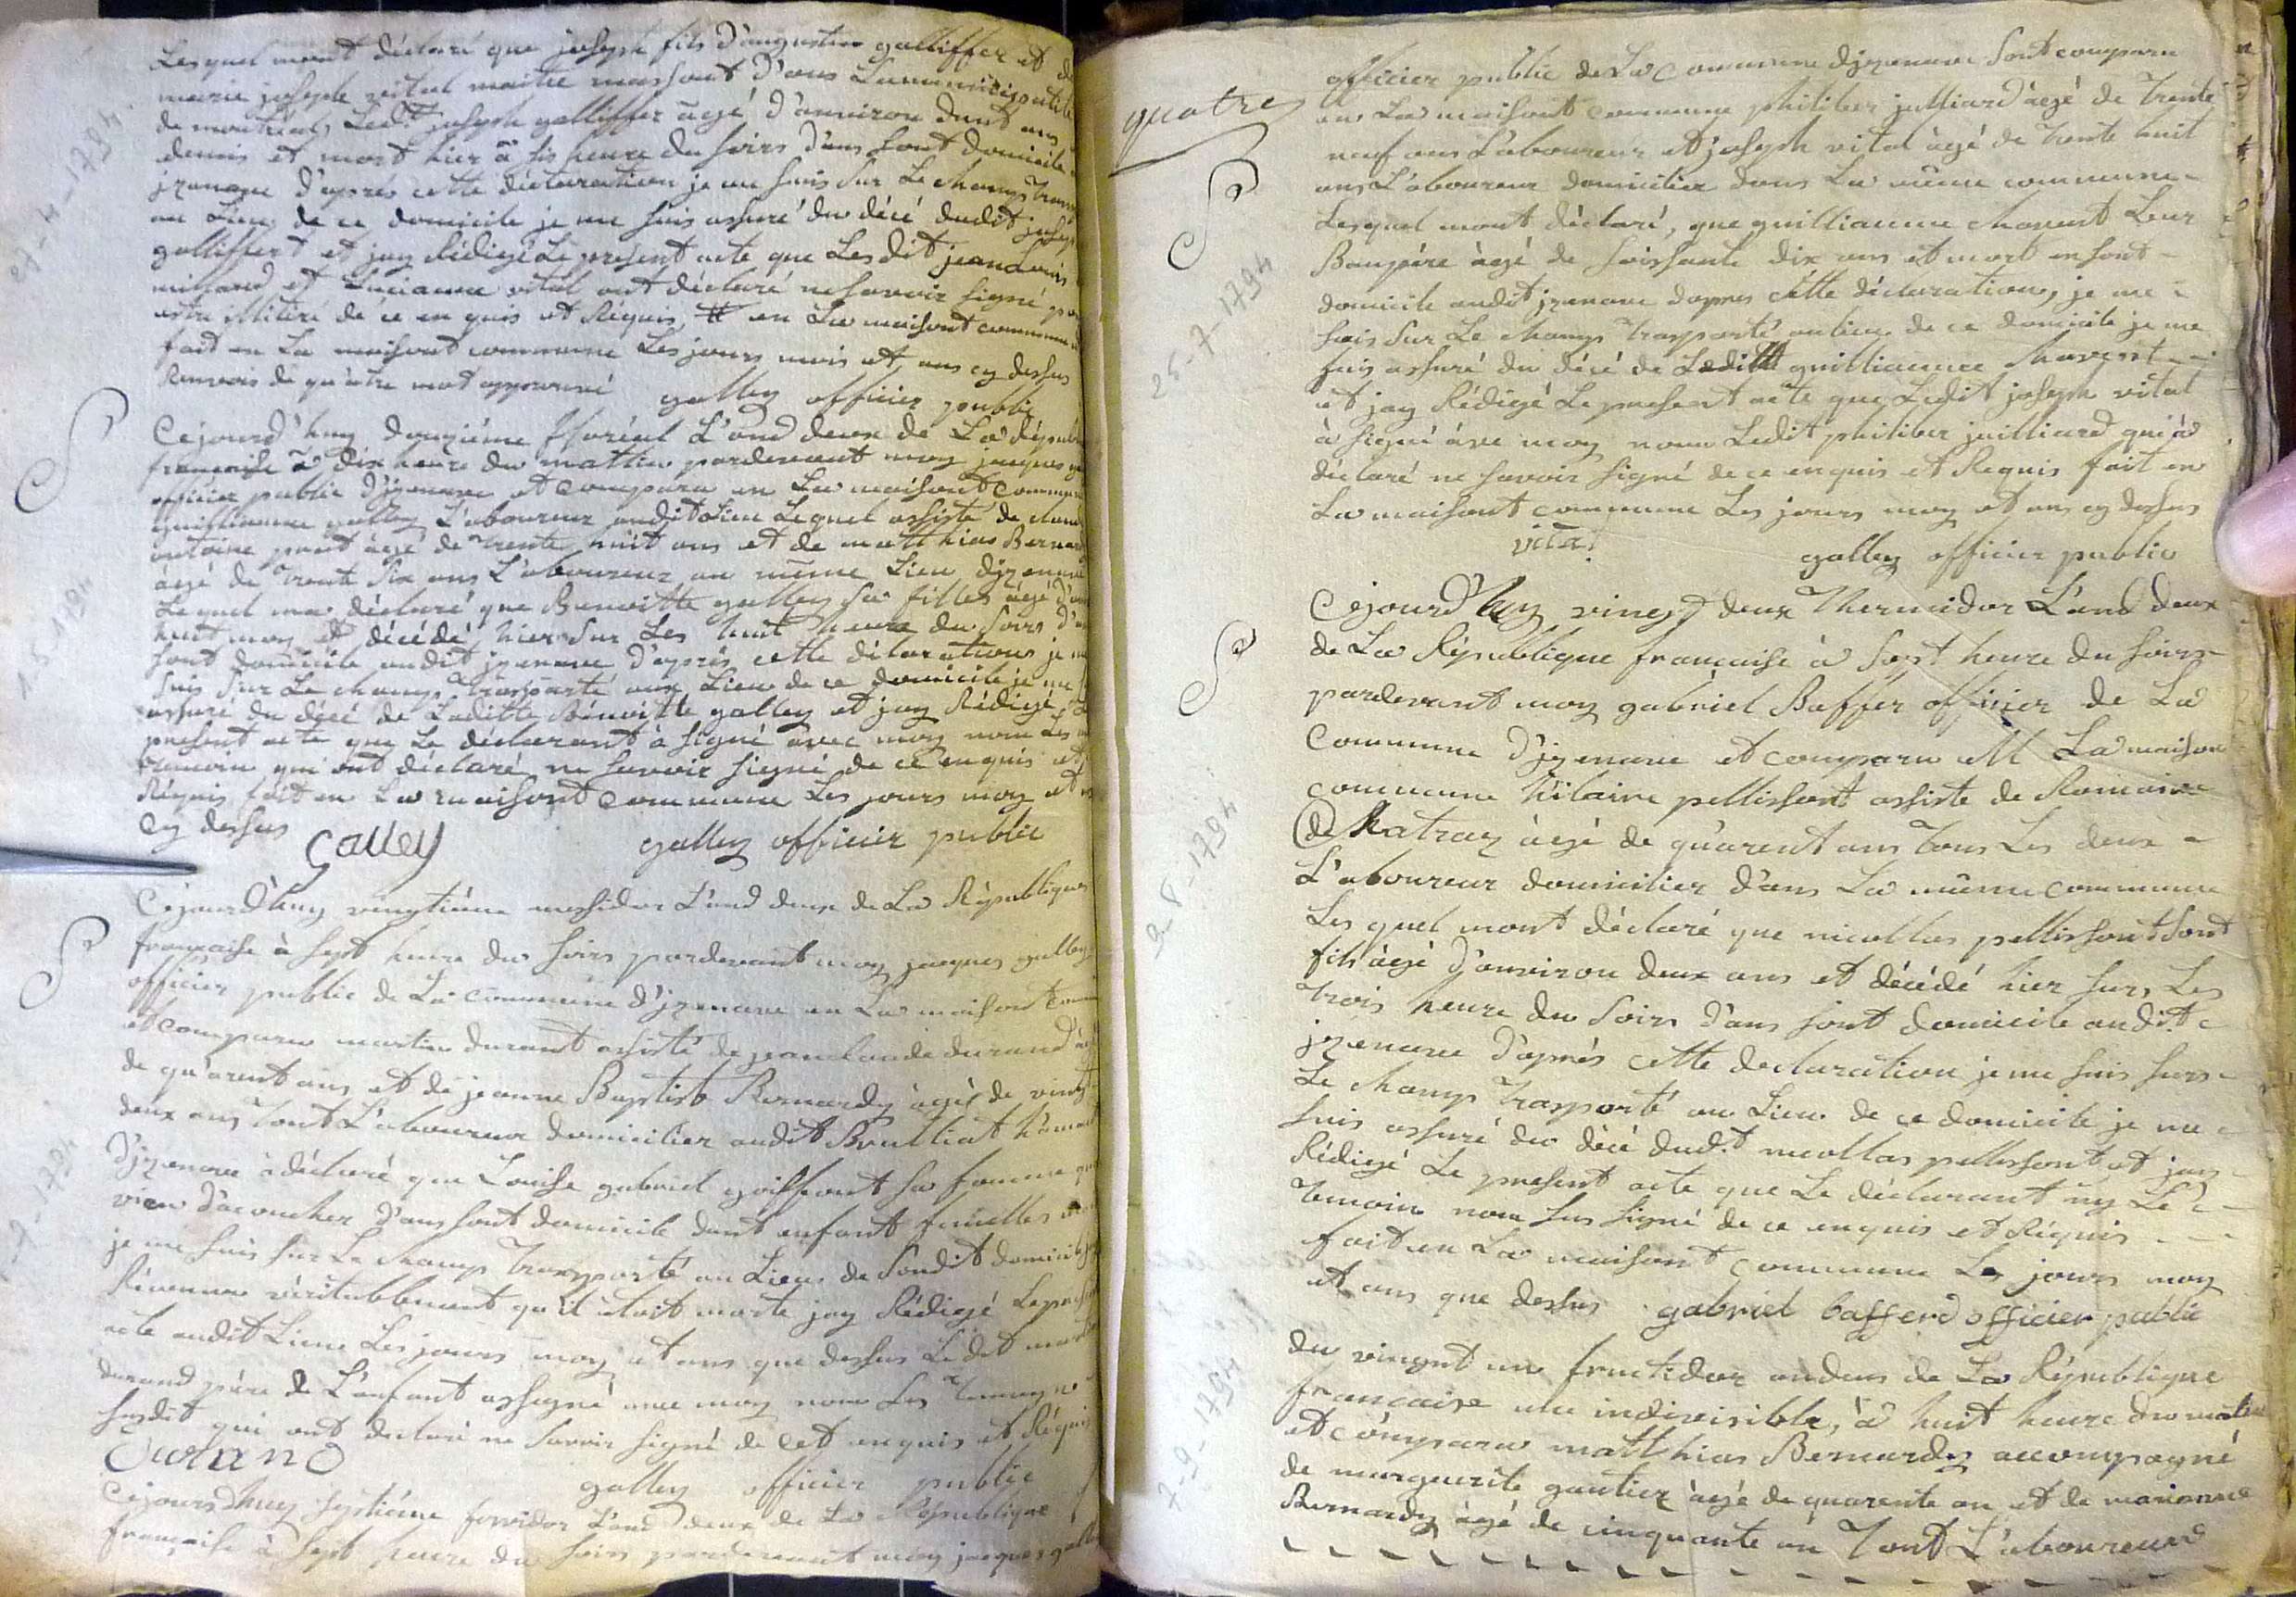 Lesquel mont déclaré que joseph fils d'augustin galliffer et de
marie joseph vital maitre massont d'ans La municipalité
de montréal, Led.t joseph galliffer agé d'anviron dunt ans
demis et mort hier à sis heure du soirs d'ans sont domicile
jzenave d'aprés cette déclaration je me suis sur Le champ
au Lieu de ce domicile je me suis assuré du décé dudit joseph
galliffert et jay Rédigé Le présent acte que Lesdit jean Louis
et vital ont déclaré ne savoir signé
estre illitéré de ce en quis et Réquis # en La maisont commune
fait en La maisont commune Les jours mois et ans cy dessus
Renvois de quatre mot approuvé galley officier public
Céjourd'huy douziéme floréal L'and deux de La Républi
francaise à dix heure du mattin pardevant moy jacques
officier public d'jzenave et comparu en La maisont commune
guilliaume galley L'aboureur audit Lieu Lequel assisté de claude
antoine agé de trente huit ans et de matthias Bernard
àgé de trente six ans L'aboureur au même Lieu djzenave
Lequel ma déclaré que Benoitte galley sa filles àgé d'
huit moy et décédé hier sur Les huit heure du soirs d'
sont domicile audit jzenave d'aprés cette déclaration je me
suis sur Le champ trasporté aux Lieu de ce domicile je me
assuré du décé de Laditte Bénoitte galley et jay Rédigé Le
présent acte que Le déclarant à signé avec moy nom Les
temoin qui ont déclaré ne savoir signé de ce enquis et
Réquis fait en La maisont commune Les jours moy et
cy dessus galley galley officier public
Céjourd'huy vingtiéme messidor L'and deux de La République
française à sept heure du soirs pardevant moy jacques galley
officier public de La commune d'jzenave en La maisont comm
et comparu martin durant assisté de jean claude durand àgé
de qu'arent ans et de jeanne Baptiste Bernardy àgés de vingt
deux ans tout L'aboureur domicilier audit Brulliat hameau
D'jzenave à déclaré que Louise gabriel goiffont sa famme
vien d'acoucher d'ans sont domicile dunt enfant fémelles
je me suis sur Le champ transporté au Lieu de Soudit domicile
Réconnu véritablement qu'il étoit morte jay Rédigé Le présent
acte audit Lieu Les jours moy et ans que dessus Ledit martin
durand pére de L'enfant assigné avec moy nom Les temoin
susdit qui ont déclaré ne savoir signé de cet enquis et Réquis
Durand galley officier public
Céjourd'huy septiéme L'and deux de La République
française à sept heure du soirs pardevant moy jacques galley
quatre
officier public de La commune djzenave sont comparu
ans La maisont commune philiber julliard àgé de trente
neuf ans L'aboureur et joseph vital àgé de trente huit
ans L'aboureur domicilier dans La même commune
Lesquel mont déclaré, que guilliaume chavent Leur
Baupére àgé de soissante dix ans et mort en sont
domicile audit jzenave dapres cette déclaration, je me
suis sur Le champ trasporté au Lieu de ce domicile je me
suis assuré du décé de Ledit guilliaume chavent
et jay Rédigé Le présent acte que Ledit joseph vital
à signé àvec moy nom Ledit philiber juilliard qui à
déclaré ne savoir signé de ce enquis et Requis fait en
La maisont commune Les jours moy et ans cy dessus
vital galley officier public
Céjourd'huy vingt deux thermidor L'and deux
de La République francaise à sept heure du soirs
pardevant moy gabriel Baffer officier de La
commune d'jzenave et comparu La maison
commune hilaire pellissont assiste de Romaine
de Katray àgé de qu'arent ans tous Les deux
L'aboureur domicilier d'ans La même commune
Les quel mont déclaré que nicollas pellissont sont
fils àgé d'anviron deux ans et décédé hier surs Les
trois heure du soirs d'ans sont domicile audit
jzenave d'aprés cette declaration je me suis surs
Le champ trasporté au Lieu de ce domicile je me
suis assuré du décé dud.t nicollas pellissont et jay
Rédigé Le présent acte que Le déclarant ny Le
temoin nom sus signé de ce enquis et Réquis
fait en La maisont commune Les jours moy
et ans que dessus gabriel bafferd officier public
du vingnt un fructidor an deux de La République
française une indivisible, à huit heure du matin
et comparu matthias Bernardy accompagné
de marguerite gautier àgé de quarente an et de marianne
Bernardy àgé de cinquante an tout L'aboureur
27-4-1794
1-5-1794
-7-1794
25-7-1794
9-8-1794
7-9-1794